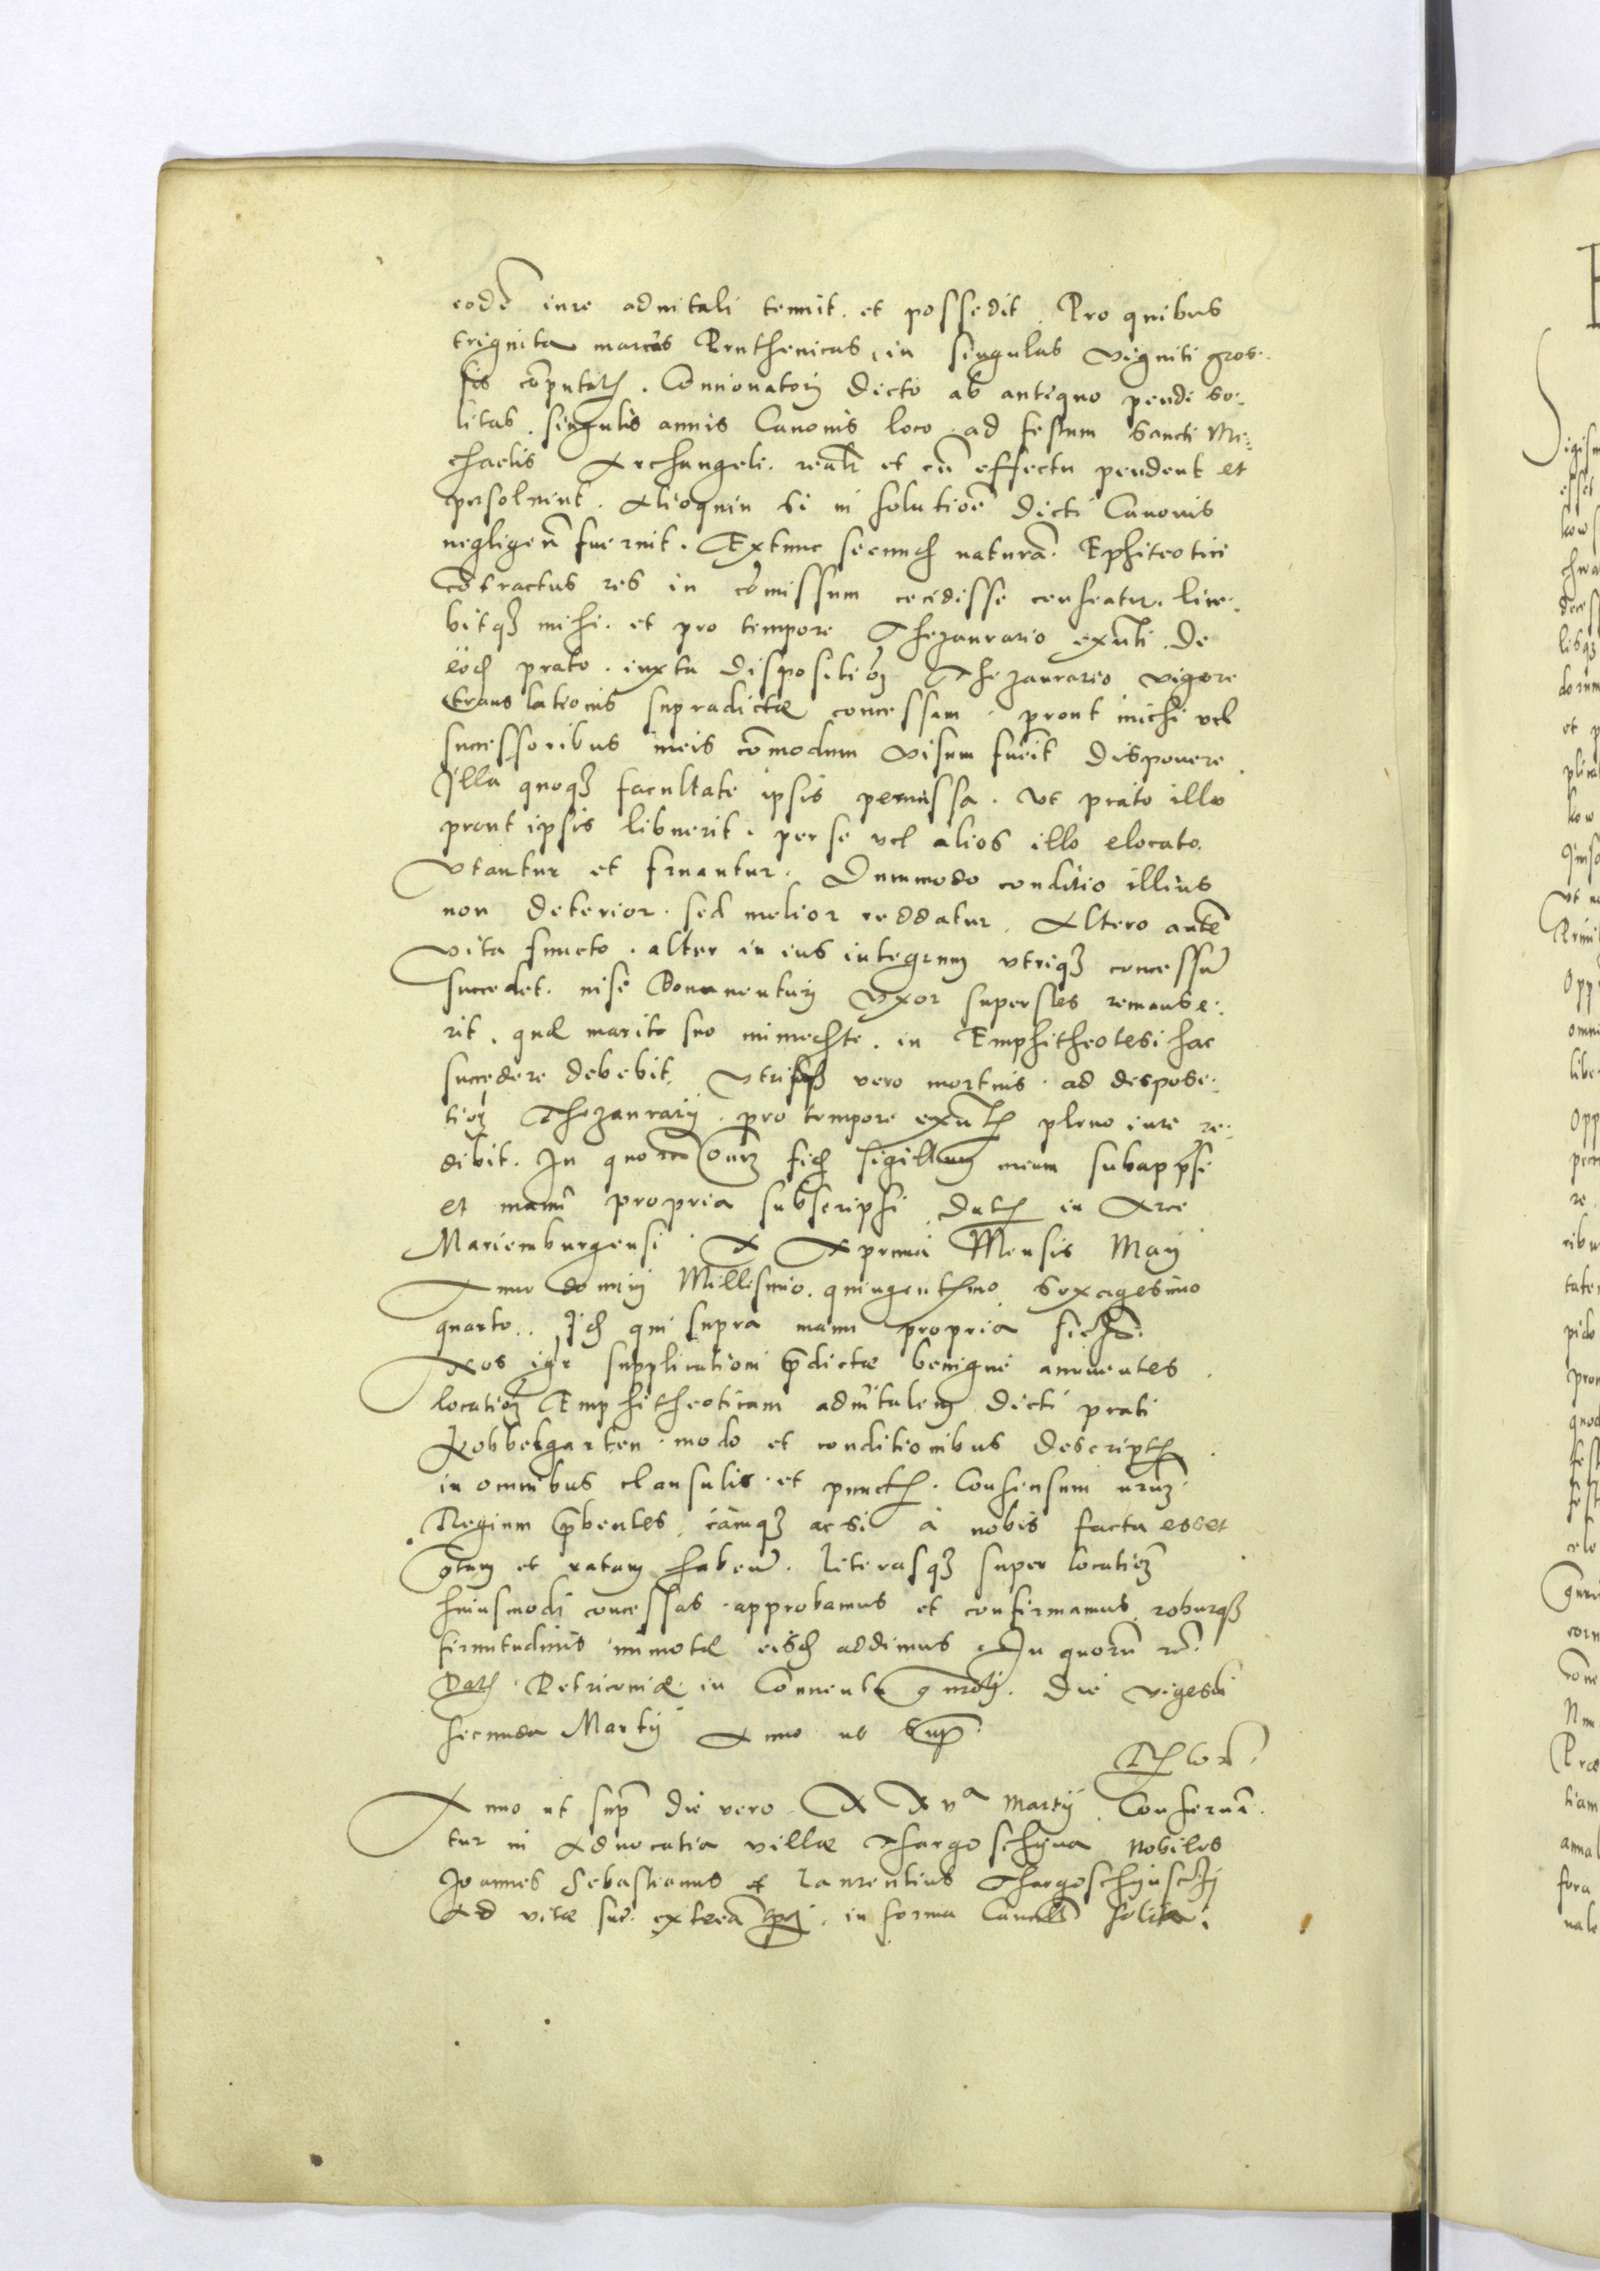 eodē iure aduitali tenuit. et possedit. Pro quibus
triginta marcas Pruthenicas, in singulas viginti gros-
sis cōputatꝭ. Conuonatorij dicto ab antiquo pendi so-
litas. singulis annis Canonis loco. ad festum Sancti Mi-
chaelis Archangeli. realr et cū effectu pendent et
persoluent. Alioquin si in solutiōe dicti Canonis
negligen̄ fuerint. Extunc secundū naturā. Ephiteotici
cōtractus res in cōmissum cecidisse censeatur. lice-
bitqȝ mihi. et pro tempore Thezaurario exn̄ti. De
eod prato. iuxta dispositiōꝫ Thezaurario vigore
translationis supradictæ concessam. prout michi vel
successoribus meis cōmodum visum fuēit disponere.
Illa quoqȝ facultate ipsis permissa. Vt prato illo
prout ipsis libuerit. per se vel alios illo elocato.
Vtantur et fruantur. Dummodo conditio illius
non deterior. sed melior reddatur. Altero autē
vita functo. alter in ius integrum vtriqȝ concessū
succedet. nisi Bonauenturæ Vxor superstes remanse-
rit. quæ marito suo in Emphitheotesi hac
succedere debebit. Vtrisqȝ vero mortuis. ad disposi-
tiōꝫ Thezaurarij. pro tempore exn̄tꝭ pleno iure re-
dibit. In quorū om̄ fidē sigillum meum subapp̄si
et manu propria subscripsi. Datꝭ in Arce
Mariemburgensi. X X prima Mensis Maij
Anno domini Millesimo. quingentesimo sexagesimo
quarto.. Idē qui supra manu propria
Nos igr supplicationi p̄dictæ benigne annuentes.
locatiōꝫ Emphitheoticam aduitalem dicti prati
Kobbelgarten. modo et conditionibus descriptꝭ.
in omnibus clausulis. et punctꝭ. Consensum nrūm
Regium p̄bentes. tamqȝ ac si à nobis facta esset
grātam et ratam habem̄. literasqȝ super locatiōꝫ
huiusmodi concessas. approbamus et confirmamus. roburqȝ
firmitudinis immotæ eisdē addimus. In quorū rei.
Datꝭ. Petricouiæ. in Conuentu gn̄rali. Die vigesīa
secunda Martij Anno ut sup̄
Anno ut sup̄ die vero. X X vᵃ Martij. Conferun̄-
tur in Aduocatia villæ Thargoschyna Nobiles
Joannes Sebastianus et Laurentius Thargoschynsckij
Ad vitæ suæ. extrēa in forma Cancell̄ solita.